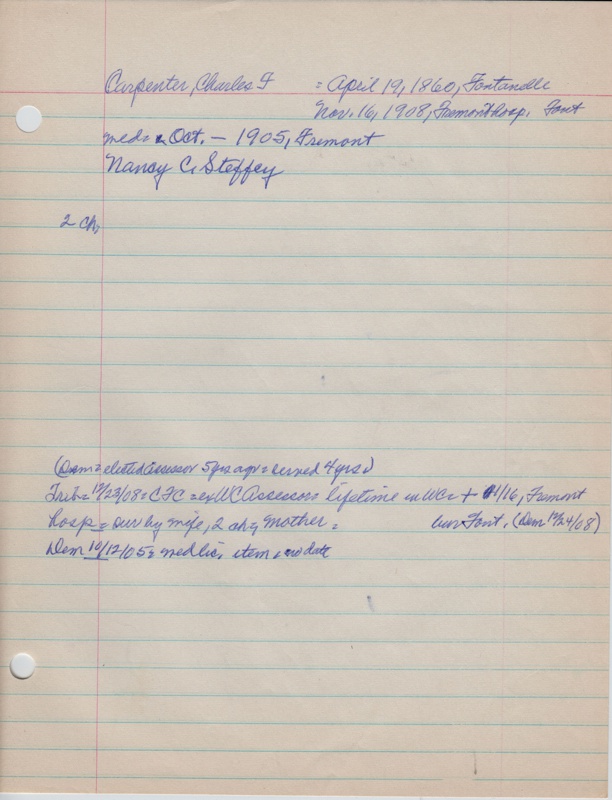 Carpenter, Charles F = April 19, 1860, Fontanelle
Nov. 16, 1908, Fremont hosp. Font
med = Oct. — 1905, Fremont
Nancy C. Steffey
2 ch,
(Dem = elected assessor 5 yrs ago = served 4 yrs.)
Trib = 12/23/08 = CFC = ex WC Assessor = lifetime in WC = + 11/16, Fremont
hosp = sur by wife, 2 ch, mother = bur Font. (Dem 12/24/08)
Dem 10/12/05 = med lic, item, no date